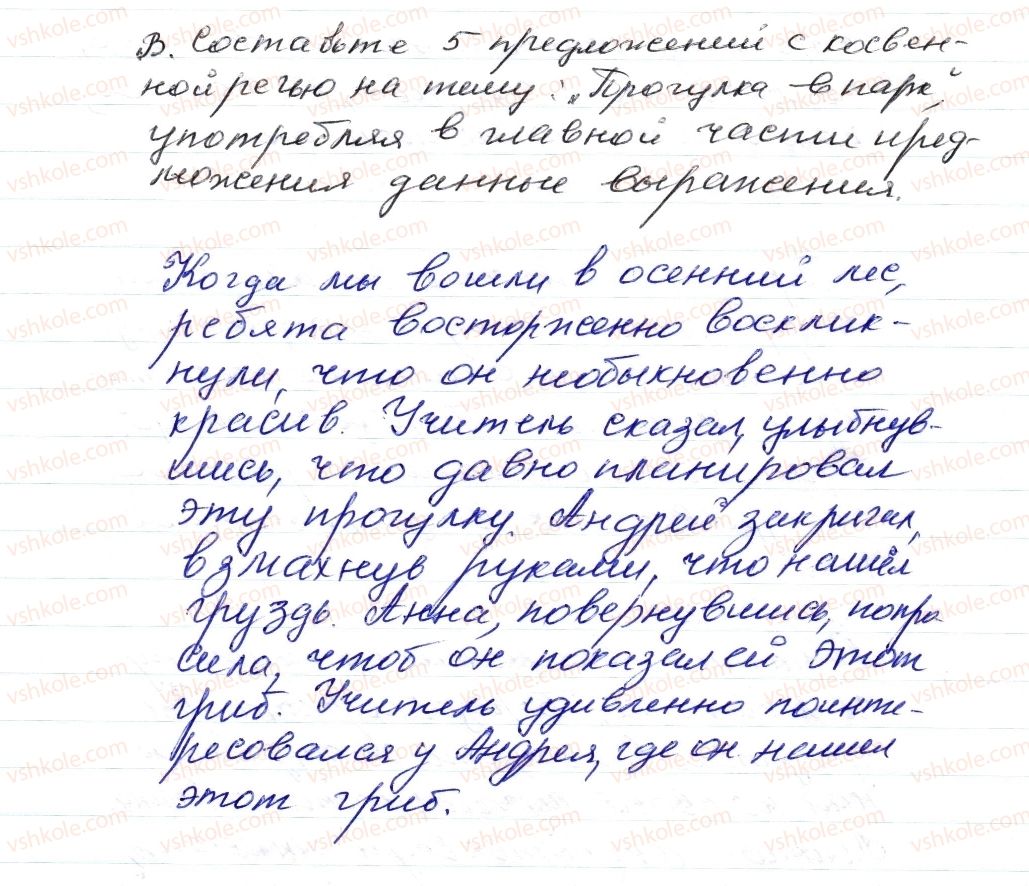 В. Составьте 5 предложений с косвен-
ной речью на тему: „Прогулка в парк"
употребляя в главной части пред-
ложения данные выражения.
Когда мы вошли в осенний лес,
ребята восторженно восклик-
нули, что он необыкновенно
красив. Учитель сказал, улыбнув-
шись, что давно планировал
эту прогулку. Андрей закричал,
взмахнув руками, что нашёл
груздь. Анна, повернувшись, попро
сила, чтоб он показал ей этот
гриб. Учитель удивленно поинте-
ресовался у Андрея, где он нашел
этот гриб.